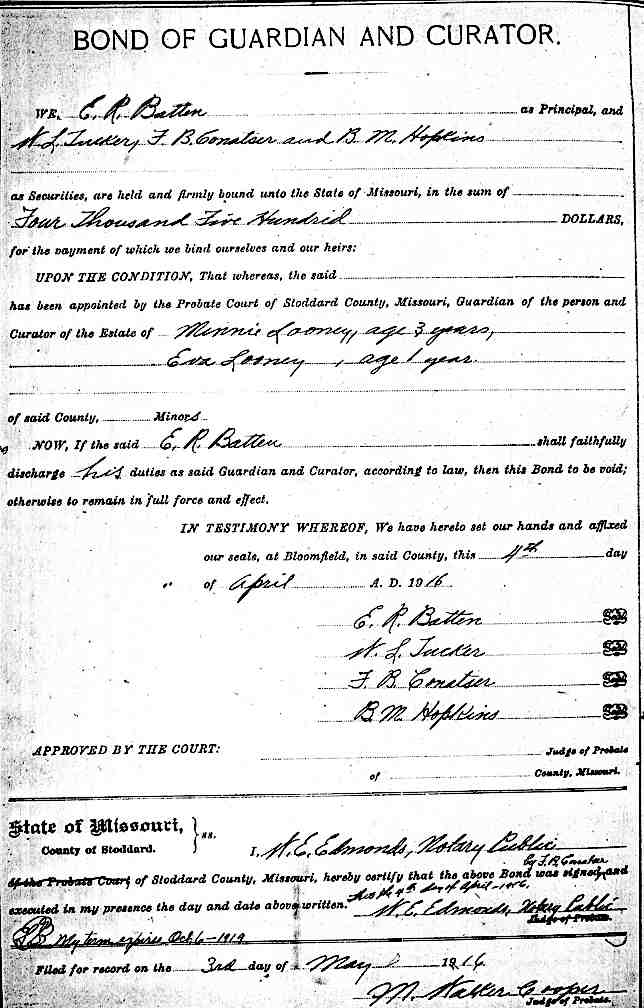 BOND OF GUARDIAN AND CURATOR.
WE, E. R. Batten as Principal, and
W. L. Tucker, F. B. Conatser and B. M. Hopkins
as Securities, are held and firmly bound unto the State of Missouri, in the sum of
Four Thousand Five Hundrid DOLLARS,
for the payment of which we bind ourselves and our heirs:
UPON THE CONDITION, That whereas, the said
has been appointed by the Probate Court of Stoddard County, Missouri, Guardian of the person and
Curator of the Estate of Minnie Looney, age 3 years,
Eva Looney, age 1 year.
of said County, Minors
NOW, If the said E. R. Batten shall faithfully
discharge his duties as said Guardian and Curator, according to law, then this Bond to be void;
otherwise to remain in full force and effect.
IN TESTIMONY WHEREOF, We have hereto set our hands and affixed
our seals, at Bloomfield, in said County, this 4th day
of April A. D. 1916.
E. R. Batten
W. L. Tucker
F. B. Conatser
B. M. Hopkins
APPROVED BY THE COURT: Judge of Probate
of County, Missouri.
State of Missouri, } ss.
County of Stoddard.
I, W. E. Edmonds, Notary Public
by F. B. Conatser
of the Probate Court of Stoddard County, Missouri, hereby certify that the above Bond was signed and
this the 4th day of April - 1916.
executed in my presence the day and date above written. W. E. Edmonds, Notary Public
Judge of Probate.
My term expires Oct 6 - 1919
Filed for record on the 3rd day of May 1916
M. Walker Cooper
Judge of Probate.